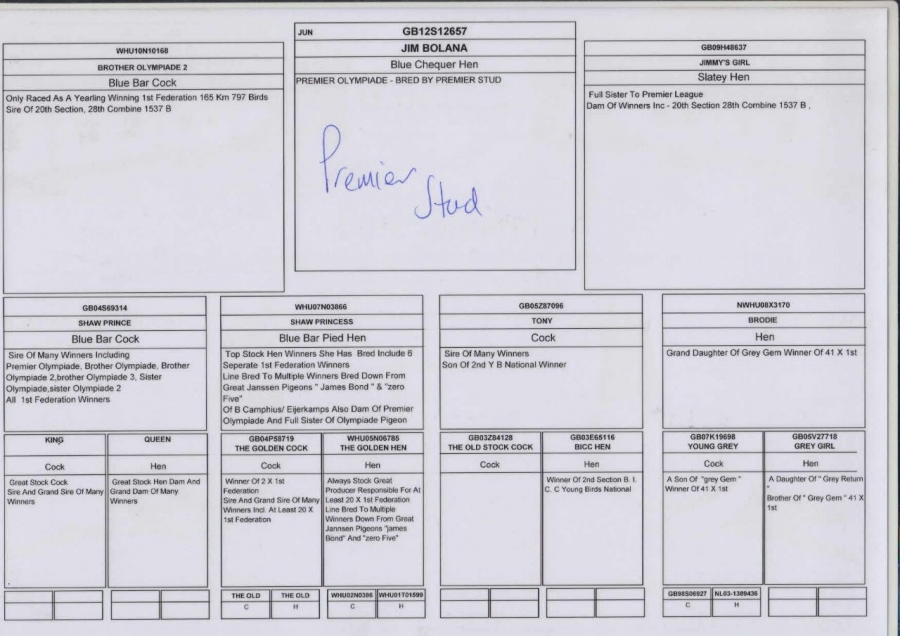 JUN GB12S12657
JIM BOLANA
Blue Chequer Hen
PREMIER OLYMPIADE - BRED BY PREMIER STUD
Premier
Stud
WHU10N10168
BROTHER OLYMPIADE 2
Blue Bar Cock
Only Raced As A Yearling Winning 1st Federation 165 Km 797 Birds
Sire Of 20th Section, 28th Combine 1537 B
GB09H48637
JIMMY'S GIRL
Slatey Hen
Full Sister To Premier League
Dam Of Winners Inc - 20th Section 28th Combine 1537 B ,
GB04S69314
SHAW PRINCE
Blue Bar Cock
Sire Of Many Winners Including
Premier Olympiade, Brother Olympiade, Brother
Olympiade 2,brother Olympiade 3, Sister
Olympiade,sister Olympiade 2
All 1st Federation Winners
WHU07N03866
SHAW PRINCESS
Blue Bar Pied Hen
Top Stock Hen Winners She Has Bred Include 6
Seperate 1st Federation Winners
Line Bred To Multiple Winners Bred Down From
Great Janssen Pigeons " James Bond " & "zero
Five"
Of B Camphius/ Eijerkamps Also Dam Of Premier
Olympiade And Full Sister Of Olympiade Pigeon
GB05Z87096
TONY
Cock
Sire Of Many Winners
Son Of 2nd Y B National Winner
NWHU08X3170
BRODIE
Hen
Grand Daughter Of Grey Gem Winner Of 41 X 1st
KING
Cock
Great Stock Cock
Sire And Grand Sire Of Many
Winners
QUEEN
Hen
Great Stock Hen Dam And
Grand Dam Of Many
Winners
GB04P58719
THE GOLDEN COCK
Cock
Winner Of 2 X 1st
Federation
Sire And Grand Sire Of Many
Winners Incl. At Least 20 X
1st Federation
WHU05N06785
THE GOLDEN HEN
Hen
Always Stock Great
Producer Responsible For At
Least 20 X 1st Federation
Line Bred To Multiple
Winners Down From Great
Jannsen Pigeons "james
Bond" And "zero Five"
GB03Z84128
THE OLD STOCK COCK
Cock
GB03E65116
BICC HEN
Hen
Winner Of 2nd Section B. I.
C. C Young Birds National
GB07K19698
YOUNG GREY
Cock
A Son Of "grey Gem "
Winner Of 41 X 1st
GB05V27718
GREY GIRL
Hen
A Daughter Of " Grey Return
"
Brother Of " Grey Gem " 41 X
1st
THE OLD
C
THE OLD
H
WHU02N0386
C
WHU01T01599
H
GB98S06927
C
NL03-1389436
H